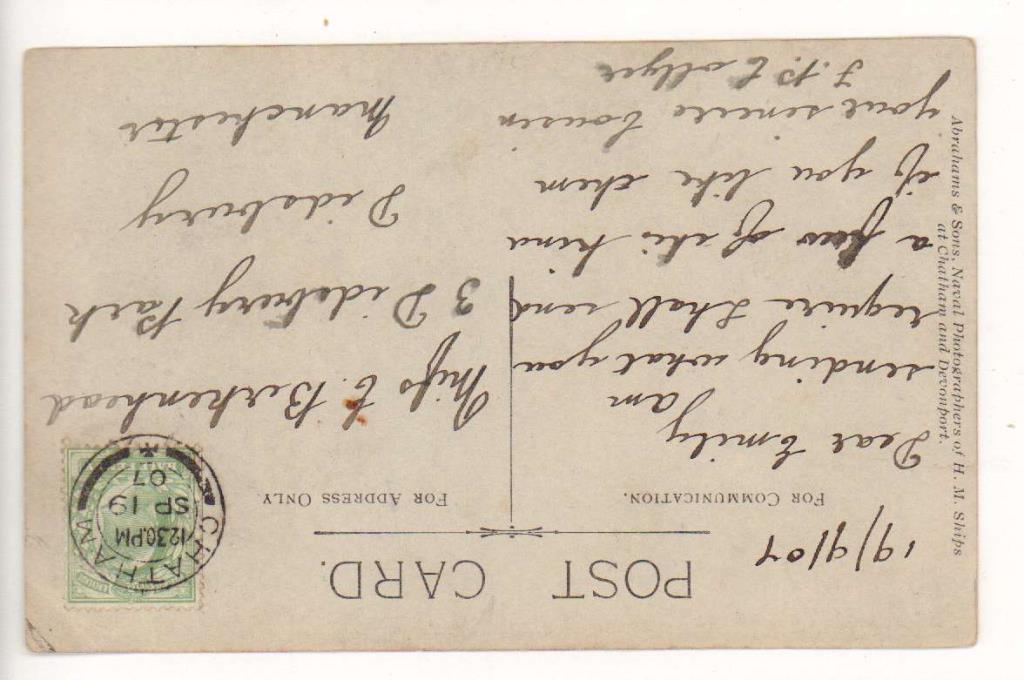 POST CARD.
19/9/07
FOR COMMUNICATION.
FOR ADDRESS ONLY.
Dear Emily
am
sending what you
require shall send
a few of this kind
if you like them
your sincere Cousin
J.P. Collyer
Miss E. Birkenhead
3 Didsbury Park
Didsbury
Manchester
CHATHAM
12.30.PM
SP 19
07
Abrahams & Sons, Naval Photographers of H. M. Ships
at Chatham and Devonport.